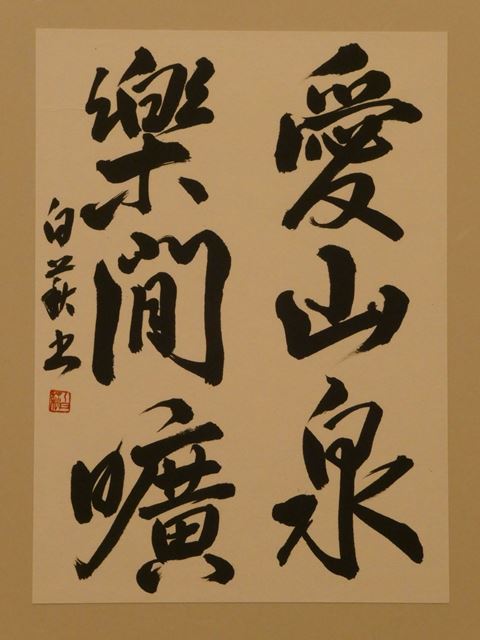 愛山泉
樂間曠
白萩書